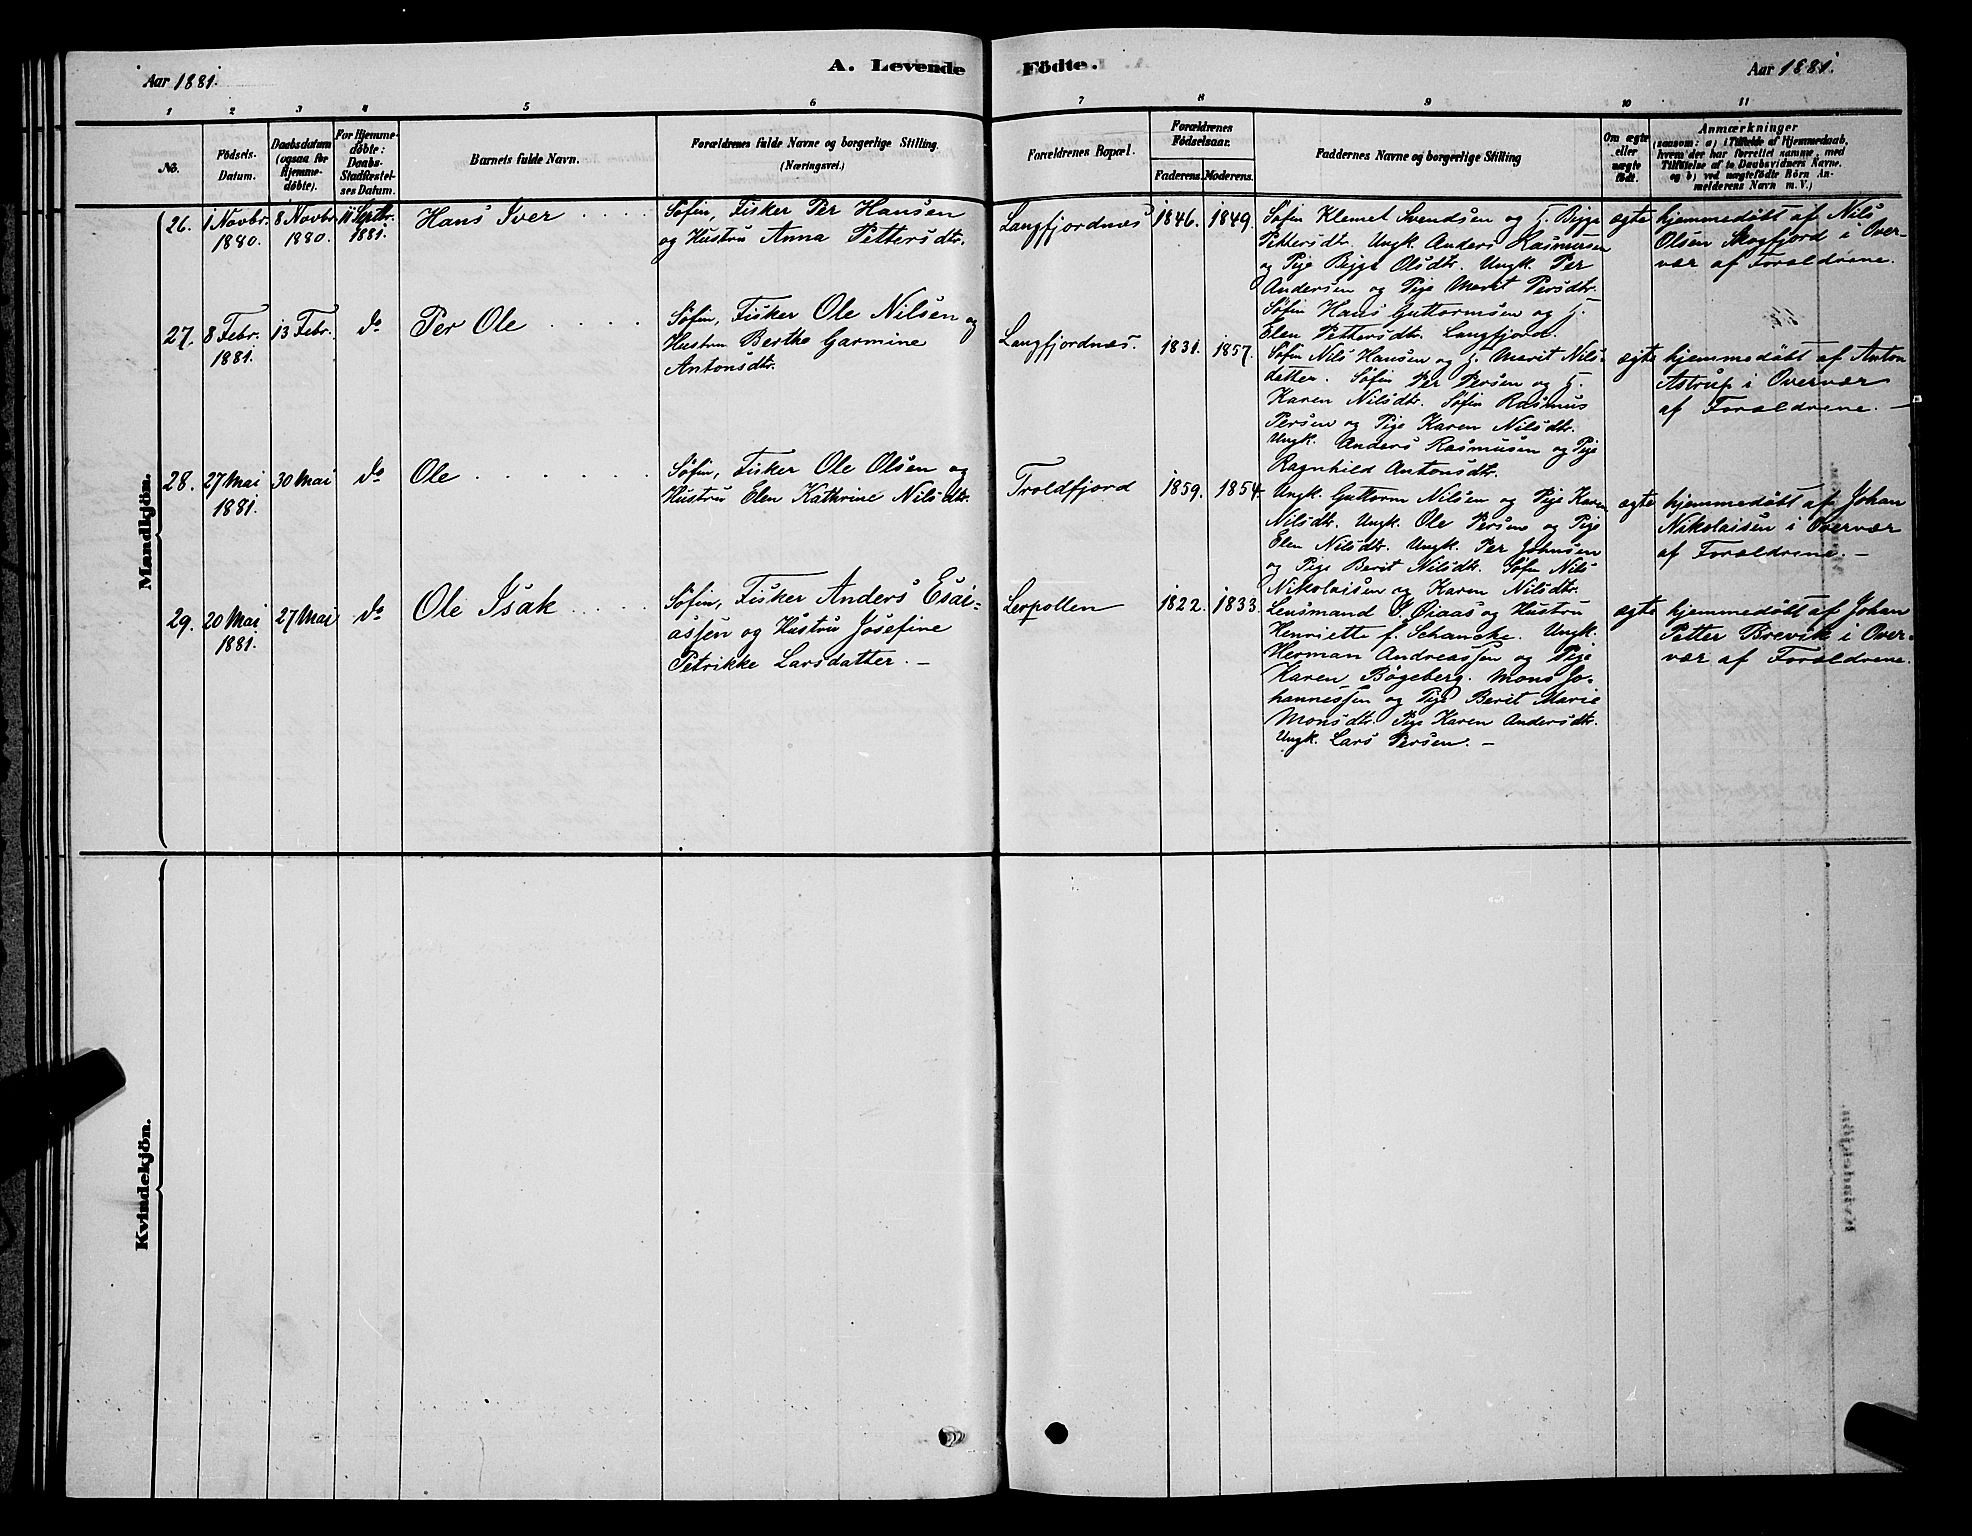 Aar 1881.
A. Levende Födte.
Aar 1881.
1 2 3 4 5 6 7 8 9 10 11
No.
Födsels-
Datum.
Daabsdatum
(ogsaa for
Hjemme-
döbte).
For Hjemme-
döbte:
Daabs-
Stadfæstel-
ses Datum.
Barnets fulde Navn.
Forældrenes fulde Navne og borgerlige Stilling.
(Næringsvei.)
Forældrenes Bopæl.
Forældrenes
Födselsaar.
Faderens. Moderens.
Faddernes Navne og borgerlige Stilling
Om ægte
eller
uægte
födt.
Anmærkninger
(saasom: a) i Tilfælde af Hjemmedaab,
hvem der har forrettet samme, med
Tilföielse af to Daabsvidners Navne,
og b) ved uægtefödte Börn An-
melderens Navn m. V.)
Mandkjön.
26.
1 Novbr.
1880.
8 Novbr.
1880.
11 Septbr.
1881.
Hans Iver
Søfin, Fisker Per Hansen
og Hustru Anna Pettersdtr.
Langfjordnæs
1846. 1849.
Søfin Klemet Svendsen og H. Bigge
Pettersdtr. Ungk. Anders Rasmusen
og Pige Bigge Olsdtr. Ungk. Per
Andersen og Pige Marit Persdtr.
Søfin Hans Guttormsen og H.
Elen Pettersdtr. Langfjord.
ægte
hjemmedøbt af Nils
Olsen Skogfjord i Over-
vær af Forældrene.
27.
8 Febr.
1881.
13 Febr.
do
Per Ole
Søfin, Fisker Ole Nilsen og
Hustru Berthe Garmine
Antonsdtr.
Langfjordnæs.
1831. 1857.
Søfin Nils Hansen og H. Marit Nils-
datter. Søfin Per Persen og H.
Karen Nilsdtr. Søfin Rasmus
Persen og Pige Karen Nilsdtr.
Ungk. Anders Rasmusen og Pige
Ragnhild Antonsdtr.
ægte
hjemmedøbt af Anton
Astrup i Overvær
af Forældrene. —
28.
27 Mai
1881.
30 Mai
do
Ole
Søfin, Fisker Ole Olsen og
Hustru Elen Kathrine Nilsdtr.
Troldfjord
1859. 1854.
Ungk. Guttorm Nilsen og Pige Karen
Nilsdtr. Ungk. Ole Persen og Pige
Elen Nilsdtr. Ungk. Per Johnsen
og Pige Berit Nilsdtr. Søfin Nils
Nikolaisen og Karen Nilsdtr.
ægte
hjemmedøbt af Johan
Nikolaisen i Overvær
af Forældrene. —
29.
20 Mai
1881.
27 Mai
do
Ole Isak
Søfin, Fisker Anders Esai-
assen og Hustru Josefine
Petrikke Larsdatter. —
Lerpollen
1822. 1833.
Lensmand Øiaas og Hustru
Henriette f. Schancke. Ungk.
Herman Andreassen og Pige
Karen Bøgeberg. Mons Jo-
hannessen og Pige Berit Marie
Monsdtr. Pige Karen Andersdtr.
Ungk. Lars Persen. —
ægte
hjemmedøbt af Johan
Petter Brevik i Over-
vær af Forældrene.
Kvindekjön.